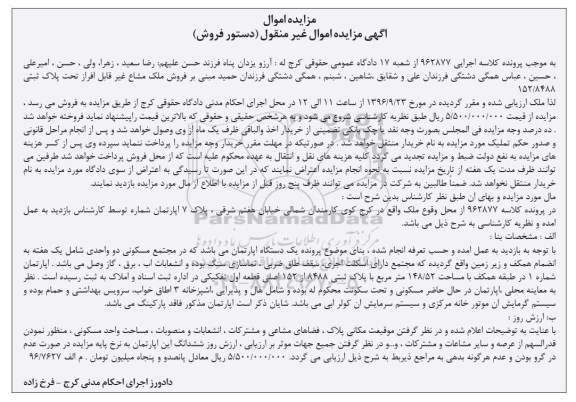 مزایده اموال
آگهی مزایده اموال غیر منقول (دستور فروش)
به موجب پرونده کلاسه اجرایی ۹۶۲۸۷۷ از شعبه ۱۷ دادگاه عمومی حقوقی کرج له : آرزو یزدان پناه فرزند حسن علیهم: رضا سعید ، زهرا، ولی ، حسن ، امیرعلی
، حسین ، عباس همگی دشتگی فرزندان علی و شقایق ،شاهین ، شبنم ، همگی دشتگی فرزندان حمید مبنی بر فروش ملک مشاع غیر قابل افراز تحت پلاک ثبتی
۱۵۲/۸۴۸۸
لذا ملک ارزیابی شده و مقرر گردیده در مورخ ۱۳۹۶/۹/۲۳ از ساعت ۱۱ الی ۱۲ در محل اجرای احکام مدنی دادگاه حقوقی کرج از طریق مزایده به فروش می رسد ،
مزایده از قیمت ۵/۵۰۰/۰۰۰/۰۰۰ ریال طبق نظریه کارشناسی شروع می شود، و به هرشخص حقیقی و حقوقی که بالاترین قیمت راپیشنهاد نماید فروخته خواهد شد
. ده درصد وجه مزایده فی المجلس بصورت وجه نقد یا چک بانکی تضمینی از خریدار اخذ والباقی ظرف یک ماه از وی وصول خواهد شد و پس از انجام مراحل قانونی
و صدور حکم تملیک مورد مزایده به نام خریدار منتقل خواهد شد . در صورتیکه در مهلت مقرر خریدار وجه مزایده را پرداخت ننماید سپرده وی پس از کسر هزینه
های مزایده به نفع دولت ضبط و مزایده تجدید می گردد کلیه هزینه های نقل و انتقال به عهده محکوم علیه است که از محل فروش پرداخت خواهد شد طرفین می
توانند ظرف مدت یک هفته از تاریخ مزایده نسبت به نحوه انجام مزایده اعتراض نمایند که در این صورت تا رسیدگی به اعتراض از سوی دادگاه مورد مزایده به نام
خریدار منتقل نخواهد شد. ضمنا طالبین به شرکت در مزایده می توانند ظرف پنج روز قبل از مزایده با اطلاع از مال مورد مزایده بازدید نمایند.
مال مورد مزایده و بهای آن طبق نظر کارشناس بدین شرح است :
در پرونده کلاسه ۹۶۲۸۷۷ از محل وقوع ملک واقع در کرج کوی کارمندان شمالی خیابان هفتم شرقی ، پلاک ۷ آپارتمان شماره توسط کارشناس بازدید به عمل
آمده و نظریه کارشناسی به شرح ذیل می باشد.
الف : مشخصات بنا :
با توجه به بازدید به عمل آمده و حسب تعرفه انجام شده ، بنای موضوع پرونده یک دستگاه آپارتمان می باشد که در مجتمع مسکونی دو واحدی شامل یک هفته به
انضمام همکف و زیر زمین واقع گردیده که مجتمع دارای اسکلت آجری، سقف طاق ضربی ، نماسازی سنگ بوده و انشعابات آب ، برق ، گاز وصل می باشد . آپارتمان
شماره ۱ در طبقه همکف با مساحت ۱۴۸/۵۲ متر مربع با پلاک ثبتی ۸۴۸۸ از ۱۵۲ اصلی قطعه اول تفکیکی در اداره ثبت اسناد و املاک به ثبت رسیده است . نظر
به معاینه محلی ،آپارتمان در حال حاضر مسکونی و تحت سکونت محکوم له بوده و شامل هال و پذیرایی آشپزخانه ۳ اطاق خواب، سرویس بهداشتی و حمام بوده و
سیستم گرمایش آن موتور خانه مرکزی و سیستم سرمایش آن کولر آبی می باشد. شایان ذکر است آپارتمان مذکور فاقد پارکینگ می باشد.
ب: ارزش روز :
با عنایت به توضیحات اعلام شده و در نظر گرفتن موقعیت مکانی پلاک ، فضاهای مشاعی و مشترکات ، انشعابات و منصوبات ، مساحت واحد مسکونی ، منظور نمودن
قدرالسهم از عرصه و سایر مشاعات و مشترکات ، و..و در نظر گرفتن جمیع جهات موثر بر ارزیابی ، ارزش روز ششدانگ این آپارتمان به نرخ پایه مزایده در صورت عدم
در گرو بودن و عدم هرگونه بدهی به مراجع ذیربط به شرح ذیل ارزیابی می گردد. ۵/۵۰۰/۰۰۰/۰۰۰ ریال معادل پانصدو و پنجاه میلیون تومان . م الف ۹۶/۷۶۲۷
دادورز اجرای احکام مدنی کرج - فرخ زاده
ParsNamadData